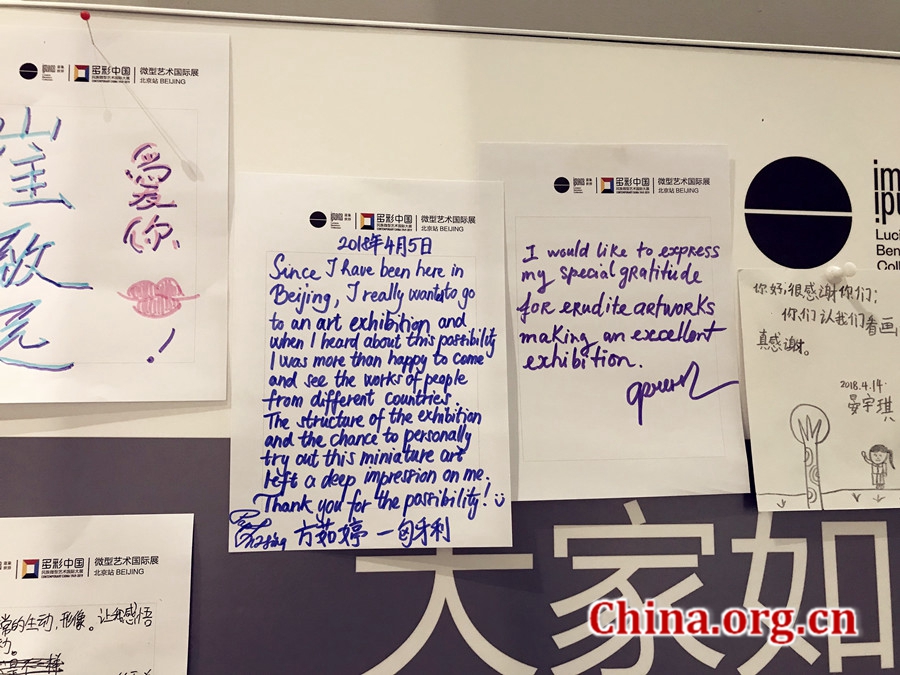 多彩中国
微型艺术国际展
北京站 BEIJING
崔
致
元
爱
你
!
多彩中国
微型艺术国际展
北京站 BEIJING
2018年4月5日
Since I have been here in
Beijing, I really wanted to go
to an art exhibition and
when I heard about this possibility
I was more than happy to come
and see the works of people
from different countries.
The structure of the exhibition
and the chance to personally
try out this miniature art
left a deep impression on me.
Thank you for the possibility!
方茹婷 — 匈牙利
多彩中国
微型艺术国际展
北京站 BEIJING
I would like to express
my special gratitude
for erudite artworks
making an excellent
exhibition.
im
Luci
Ben
Coll
你好,很感谢你们;
你们认我们看画
真感谢。
2018.4.14.
晏宇琪
多彩中国
微型艺术国际展
北京站 BEIJING
常的生动,形像。让我感悟
动。
大家如
China.org.cn